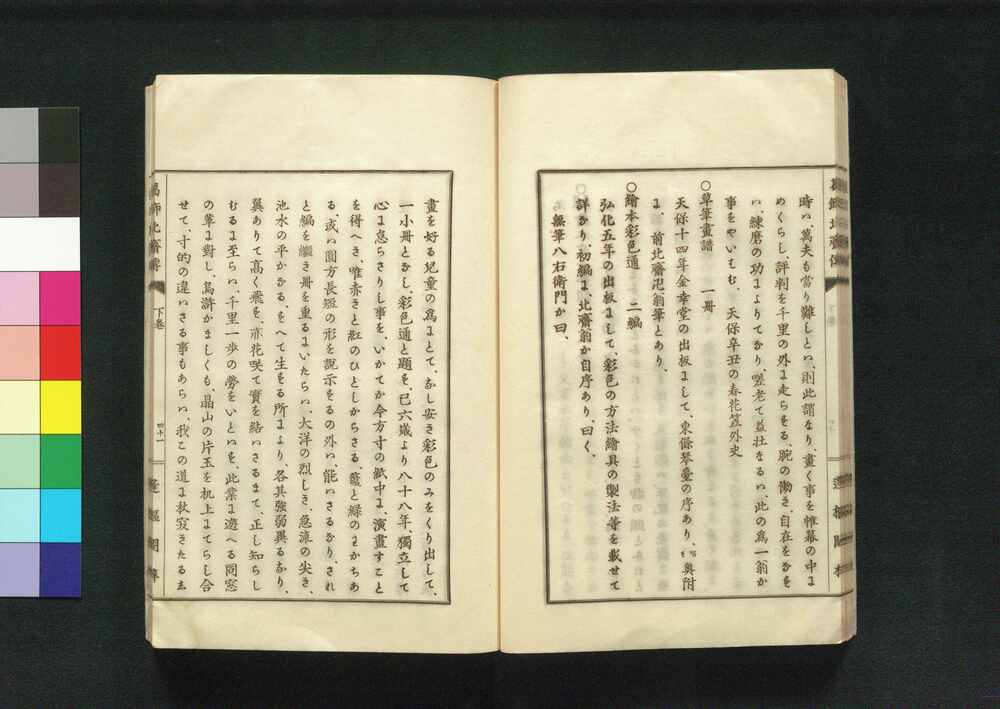 時ハ、萬夫も當り難しとハ、則此謂なり、畫く事を帷幕の中に
めくらし、評判を千里の外に走らする、腕の働き、自在をなを
ハ、練磨の功によりてなり、嗟老て益壮なるハ、此の為一翁か
事をやいもむ、天保辛丑の春花笠外史
〇草筆畫譜 一冊
天保十四年金幸堂の出板にして、東條琴臺の序あり、奥附
に、前北齋卍翁筆とあり、
〇繪本彩色通 二編
弘化五年の出板にして、彩色の方法繪具の製法等を載せて
詳かり、初編に、北齋翁か自序あり、曰く、
無筆八右衛門か曰、
畫を好る兒童の為にとて、なし安き彩色のみをくり出して、
一小冊となし、彩色通と題を、已六歳より八十八年、獨立して
心に怠らさりし事を、いかてか今方寸の紙中に、演畫すこと
を得へき、唯赤きと紅のひとしからさる、藍と緑のわかちあ
る、或ハ圓方長短の形を説示をるの外ハ、能ハさるなり、され
と編を繼き冊を重るにいたらハ、大洋の烈しき、急流の尖き、
池水の平かなる、をへて生をる所により、各其強弱異るなり、
翼ありて高く飛を、亦花咲て實を結ハさるまて、正し知らし
むるに至らハ、千里一歩の勞をいとハを、此業に遊へる同窓
の輩に對し、烏滸かましくも、晶山の片玉を机上にてらし合
せて、寸的の違ハさる事もあらハ、我この道に杖突きたる
葛飾北齋傳
下巻
四十一
蓬樞閣梓